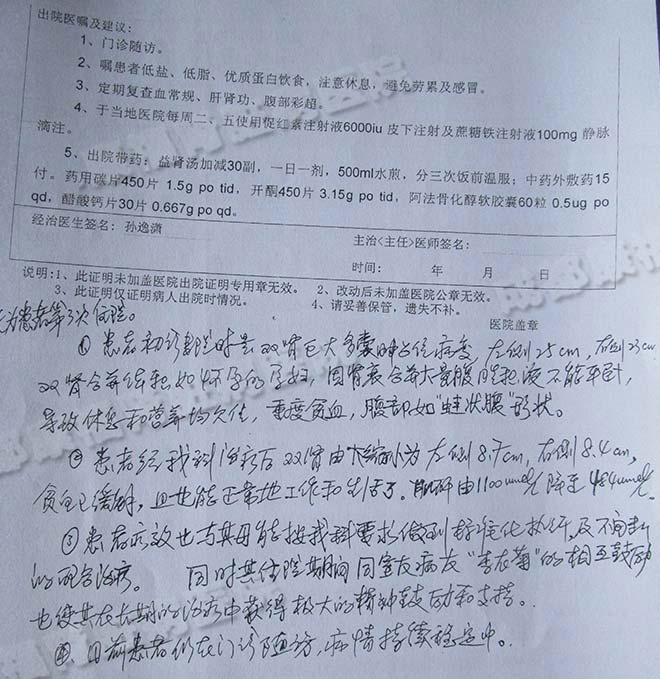 出院医嘱及建议：
1、门诊随访。
2、嘱患者低盐、低脂、优质蛋白饮食，注意休息，避免劳累及感冒。
3、定期复查血常规、肝肾功、腹部彩超。
4、于当地医院每周二、五使用促红素注射液6000iu 皮下注射及蔗糖铁注射液100mg 静脉
滴注。
5、出院带药：益肾汤加减30副，一日一剂，500ml水煎，分三次饭前温服；中药外敷药15
付。药用碳片450片 1.5g po tid，开酮450片 3.15g po tid，阿法骨化醇软胶囊60粒 0.5ug po
qd，醋酸钙片30片 0.667g po qd。
经治医生签名：孙逸潇
主治<主任>医师签名：
时间： 年 月 日
说明：1、此证明未加盖医院出院证明专用章无效。 2、改动后未加盖医院公章无效。
3、此证明仅证明病人出院时情况。 4、请妥善保管，遗失不补。
医院盖章
为患者第3次住院。
① 患者初诊入院时是双肾巨大多囊肿占位病变，左侧25cm，右侧23cm
双肾合并体积如怀孕的孕妇，因肾衰合并大量腹腔积液不能平卧，
导致休息和营养均欠佳，重度贫血，腹部如"蛙状腹"形状。
② 患者经我科治疗后双肾由大缩小为左侧8.7cm，右侧8.4cm，
贫血已缓解，且也能正常地工作和生活了。肌酐由1100umol/L降至484umol/L。
③ 患者疗效也与其母能按我科要求做到标准化执行，及不间断
的配合治疗。 同时其住院期间同室友病友"李在菊"的相互鼓励
也使其在长期的治疗中获得极大的精神鼓励和支持。
④ 目前患者仍在门诊随访，病情持续稳定中。